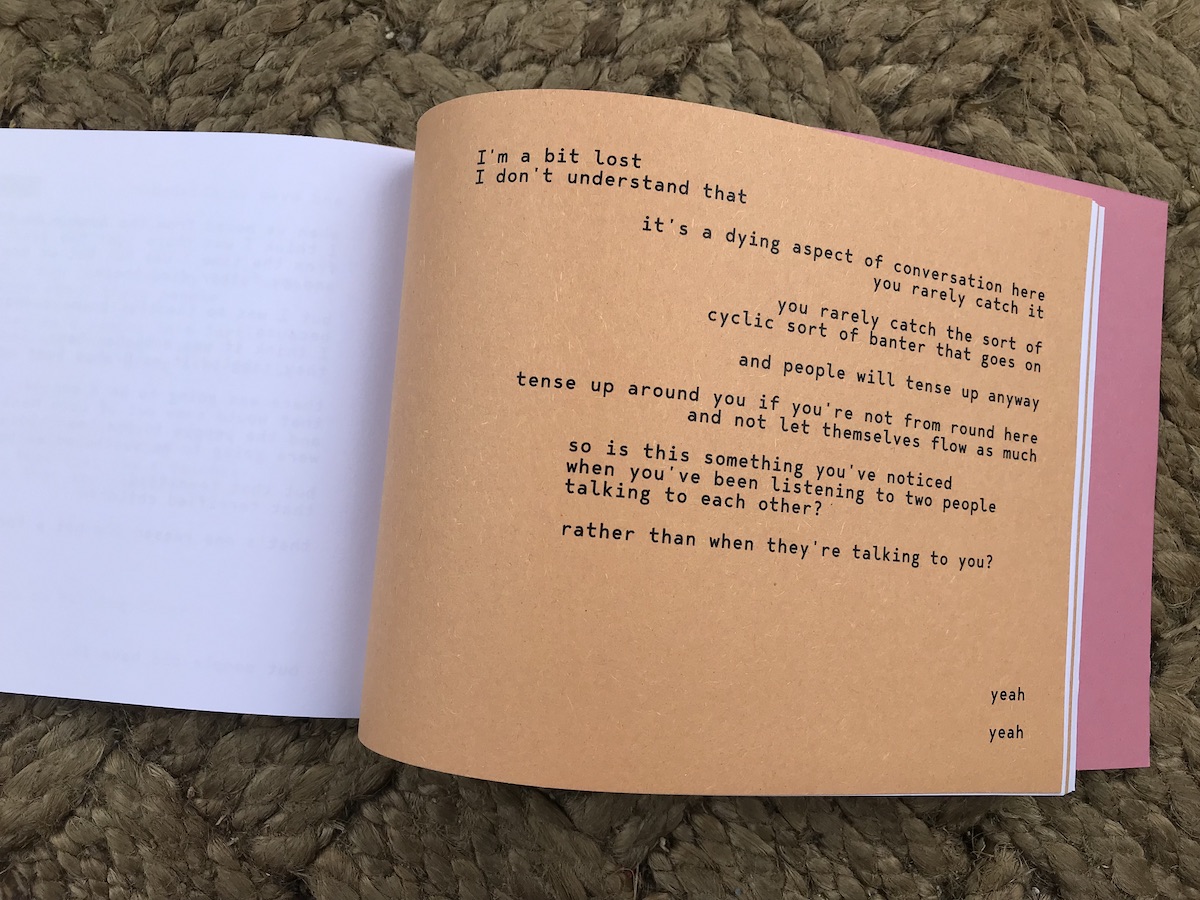 I'm a bit lost
I don't understand that
it's a dying aspect of conversation here
you rarely catch it
you rarely catch the sort of
cyclic sort of banter that goes on
and people will tense up anyway
tense up around you if you're not from round here
and not let themselves flow as much
so is this something you've noticed
when you've been listening to two people
talking to each other?
rather than when they're talking to you?
yeah
yeah